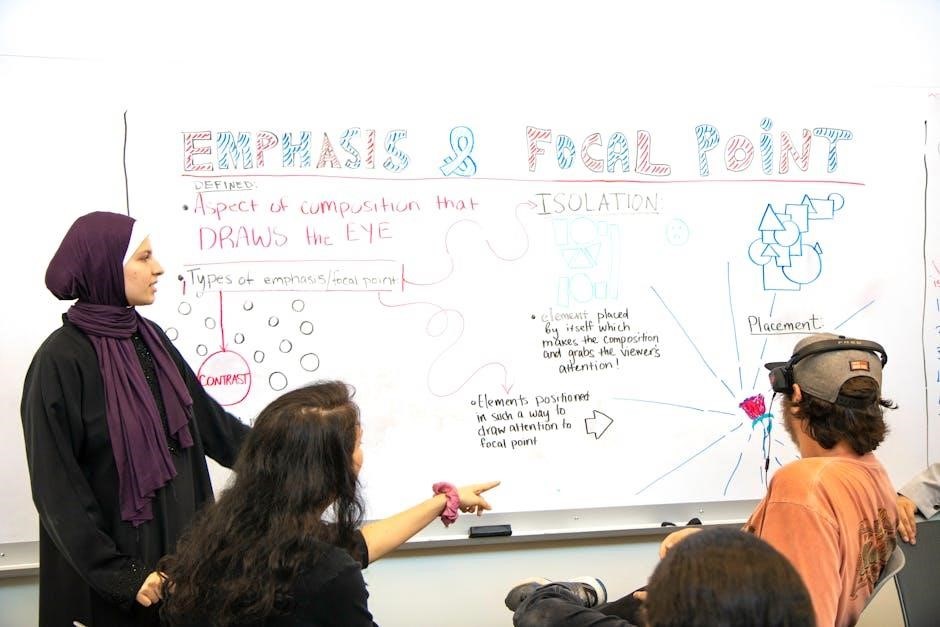 EMPHASIS & FOCAL POINT
DEFINED:
• Aspect of composition that
DRAWS the EYE
• Types of emphasis/focal point
CONTRAST
ISOLATION:
• element placed
by itself which
makes the composition
and grabs the viewer's
attention!
Placement:
• Elements positioned
in such a way to
draw attention to
focal point